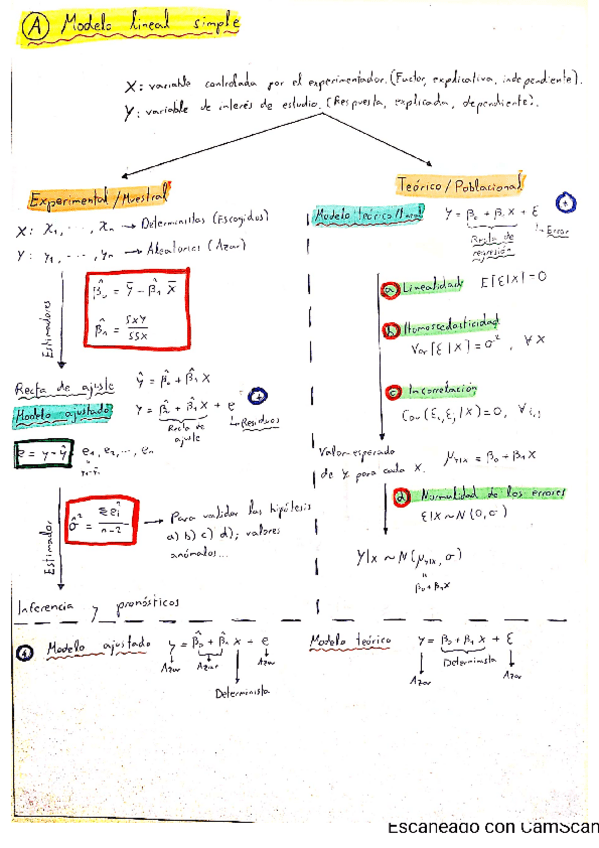 A Modelo lineal simple
X: variable controlada por el experimentador. (Factor, explicativa, independiente).
Y: variable de interés de estudio. (Respuesta, explicada, dependiente).
Experimental/Muestral
X: x₁, ..., xₙ → Deterministas (Escogidos)
Y: y₁, ..., yₙ → Aleatorios (Azar)
Estimadores
β̂₀ = ȳ - β̂₁ x̄
β̂₁ = SxY / SSX
Recta de ajuste ŷ = β̂₀ + β̂₁ x
Modelo ajustado y = β̂₀ + β̂₁ x + e
Recta de ajuste
Residuos
e = y - ŷ e₁, e₂, ..., eₙ
Estimador
σ̂² = Σeᵢ² / n-2 → Para validar las hipótesis
a) b) c) d); valores
anómalos...
Inferencia y pronósticos
Teórico/Poblacional
Modelo teórico
Y = β₀ + β₁ X + ε
Recta de regresión
Error
a Linealidad E[ε|X] = 0
b Homoscedasticidad
Var[ε|X] = σ², ∀X
c Incorrelación
Cov(εᵢ, εⱼ|X) = 0, ∀i,j
Valor esperado
de Y para cada X. μY|X = β₀ + β₁X
d Normalidad de los errores
ε|X ~ N(0, σ)
Y|X ~ N(μY|X, σ)
"
β₀+β₁X
Modelo ajustado y = β̂₀ + β̂₁ x + e
Azar Azar Azar
Determinista
Modelo teórico Y = β₀ + β₁ X + ε
Azar Determinista Azar
Escaneado con CamScan